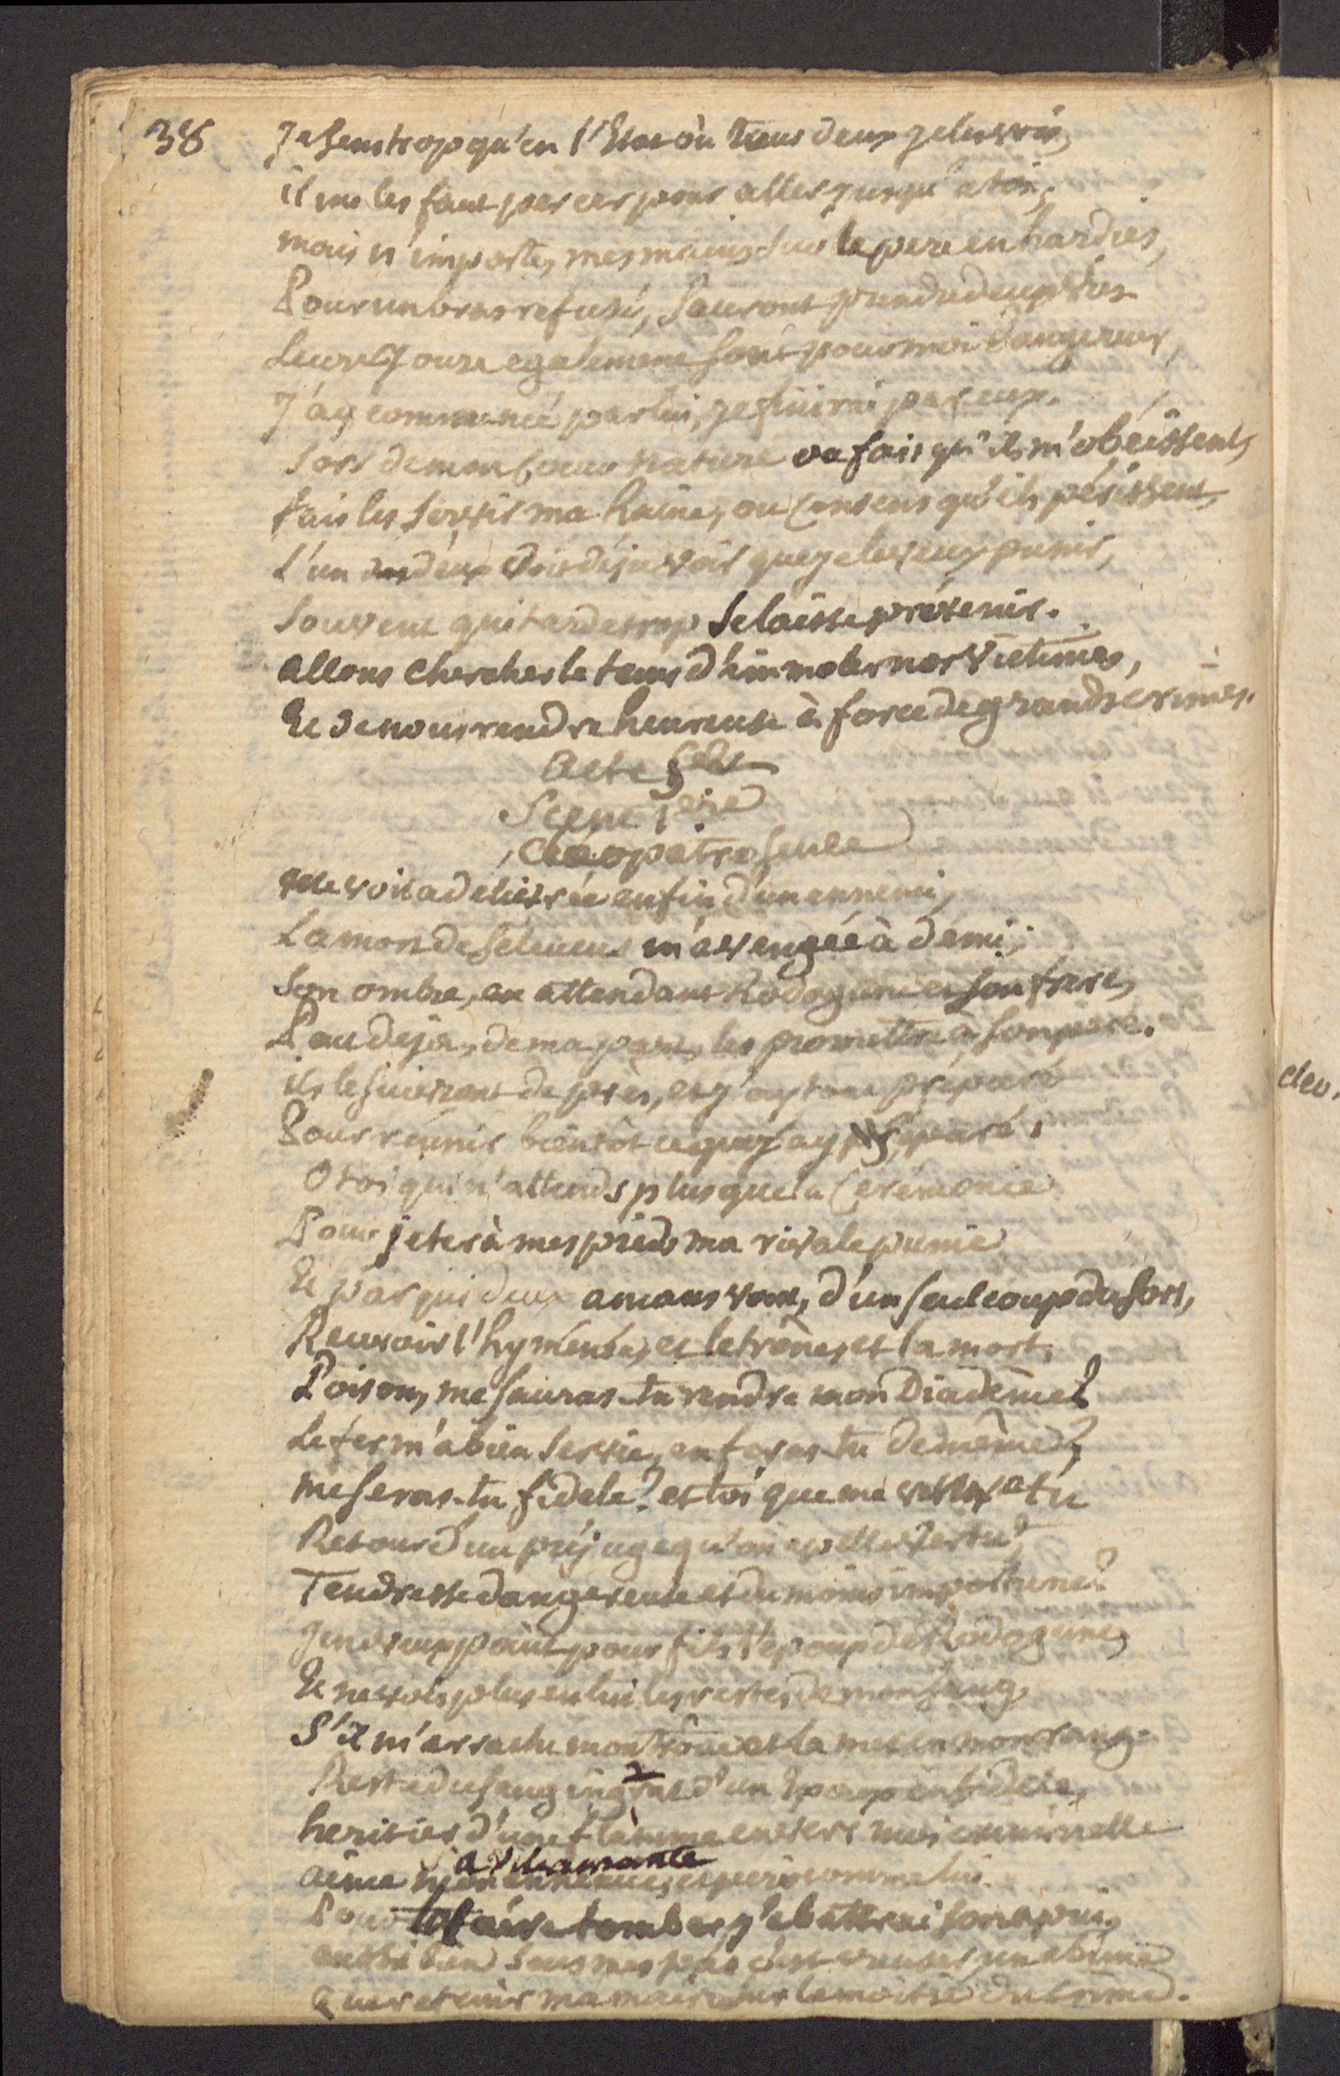 38
Je sens trop qu'en l'Etat où tous deux je les vois,
il me les faut percer pour aller jusqu'à toi;
mais n'importe, mes mains sur le pere enhardies,
Pour un bras refusé, sauront prendre deux vies
Leurs jours egalement sont pour moi dangereux,
J'ay commencé par lui, je finirai par eux.
Sors de mon coeur nature ou fais qu'ils m'obéissent,
fais les servir ma haine, ou consens qu'ils périssent,
L'un des deux doit déja voir que je les veux punir,
Souvent qui tarde trop se laisse prévenir.
allons chercher le tems d'immoler nos victimes,
Et de nous rendre heureuse à force de grands crimes.
Acte 5eme
Scene 1ere
Cléopatre seule
Me voila délivrée enfin d'un ennemi,
La mort de Séleucus m'a vengée à demi;
Son ombre, en attendant Rodogune et son frere,
Peut déja, de ma part, les promettre à son pere.
ils le suivront de près, et j'ay tout préparé
Pour réunir bientôt ce que j'ay séparé,
O toi qui n'attends plus que la Cérémonie
Pour jeter à mes pieds ma rivale punie
Et par qui deux amans vont, d'un seul coup du sort,
Recevoir l'hyménée, et le trône, et la mort,
Poison, me sauras-tu rendre mon Diadême?
Le fer m'a bien servie, en feras-tu de même?
me seras-tu fidele? et toi que me veux tu
Retour d'un préjugé qu'on apelle vertu,
Tendresse dangereuse et du moins importune?
Je ne veux point pour fils l'époux de Rodogune,
Et ne vois plus en lui les restes de mon sang,
S'il m'arrache mon trône et la met en mon rang.
Reste du sang ingrat d'un époux infidele,
heritier d'une flamme envers moi criminelle
aime mon ennemie, et péris comme lui.
a l'amante
Pour la faire tomber j'abattrai son apui,
aussi bien sous mes pas c'est creuser un abîme
Que retenir ma main sur la moitié du crime.
cleo.